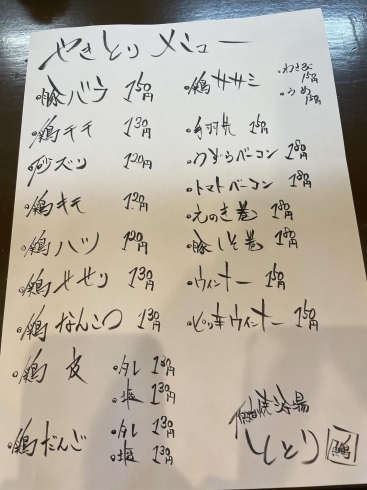 やきとりメニュー
豚バラ 150円
鶏モモ 130円
砂ズリ 120円
鶏キモ 120円
鶏ハツ 120円
鶏セセリ 130円
鶏なんこつ 130円
鶏皮 タレ 130円
塩 130円
鶏だんご タレ 130円
塩 130円
鶏ササミ わさび 150円
うめ 150円
手羽先 150円
うずらベーコン 180円
トマトベーコン 180円
えのき巻 180円
豚しそ巻 180円
ウインナー 150円
ピリ辛ウインナー 150円